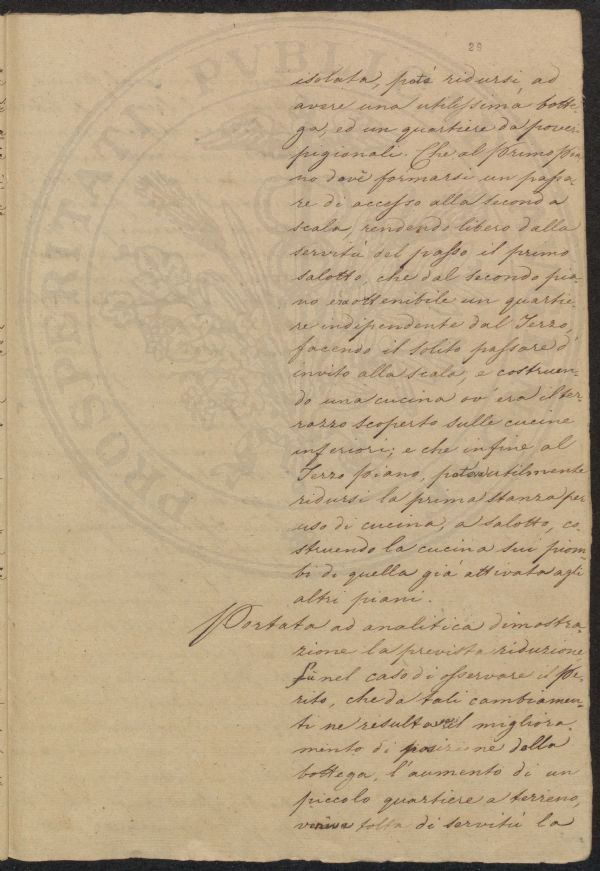 29
PROSPERITATI PVBLIC
isolata, poté ridursi ad
avere una utilissima botte-
ga, ed un quartiere da poveri
pigionali. Che al Primo Pia-
no dové formarsi un passa-
re di accesso alla seconda
scala, rendendo libero dalla
servitù del passo il primo
salotto, che dal secondo pia-
no era ottenibile un quartie-
re indipendente dal Terzo,
facendo il solito passare d'
invito alla scala, e costruen-
do una cucina ov' era il ter-
razzo scoperto sulle cucine
inferiori; e che infine al
Terzo Piano, poteva utilmente
ridursi la prima stanza per
uso di cucina, a salotto, co-
struendo la cucina sui piom-
bi di quella già attivata agli
altri piani.
Portata ad analitica dimostra-
zione la prevista riduzione
fù nel caso di osservare il Pe-
rito, che da tali cambiamen-
ti ne resultava il migliora-
mento di posizione della
bottega, l'aumento di un
piccolo quartiere a terreno,
veniva tolta di servitù la